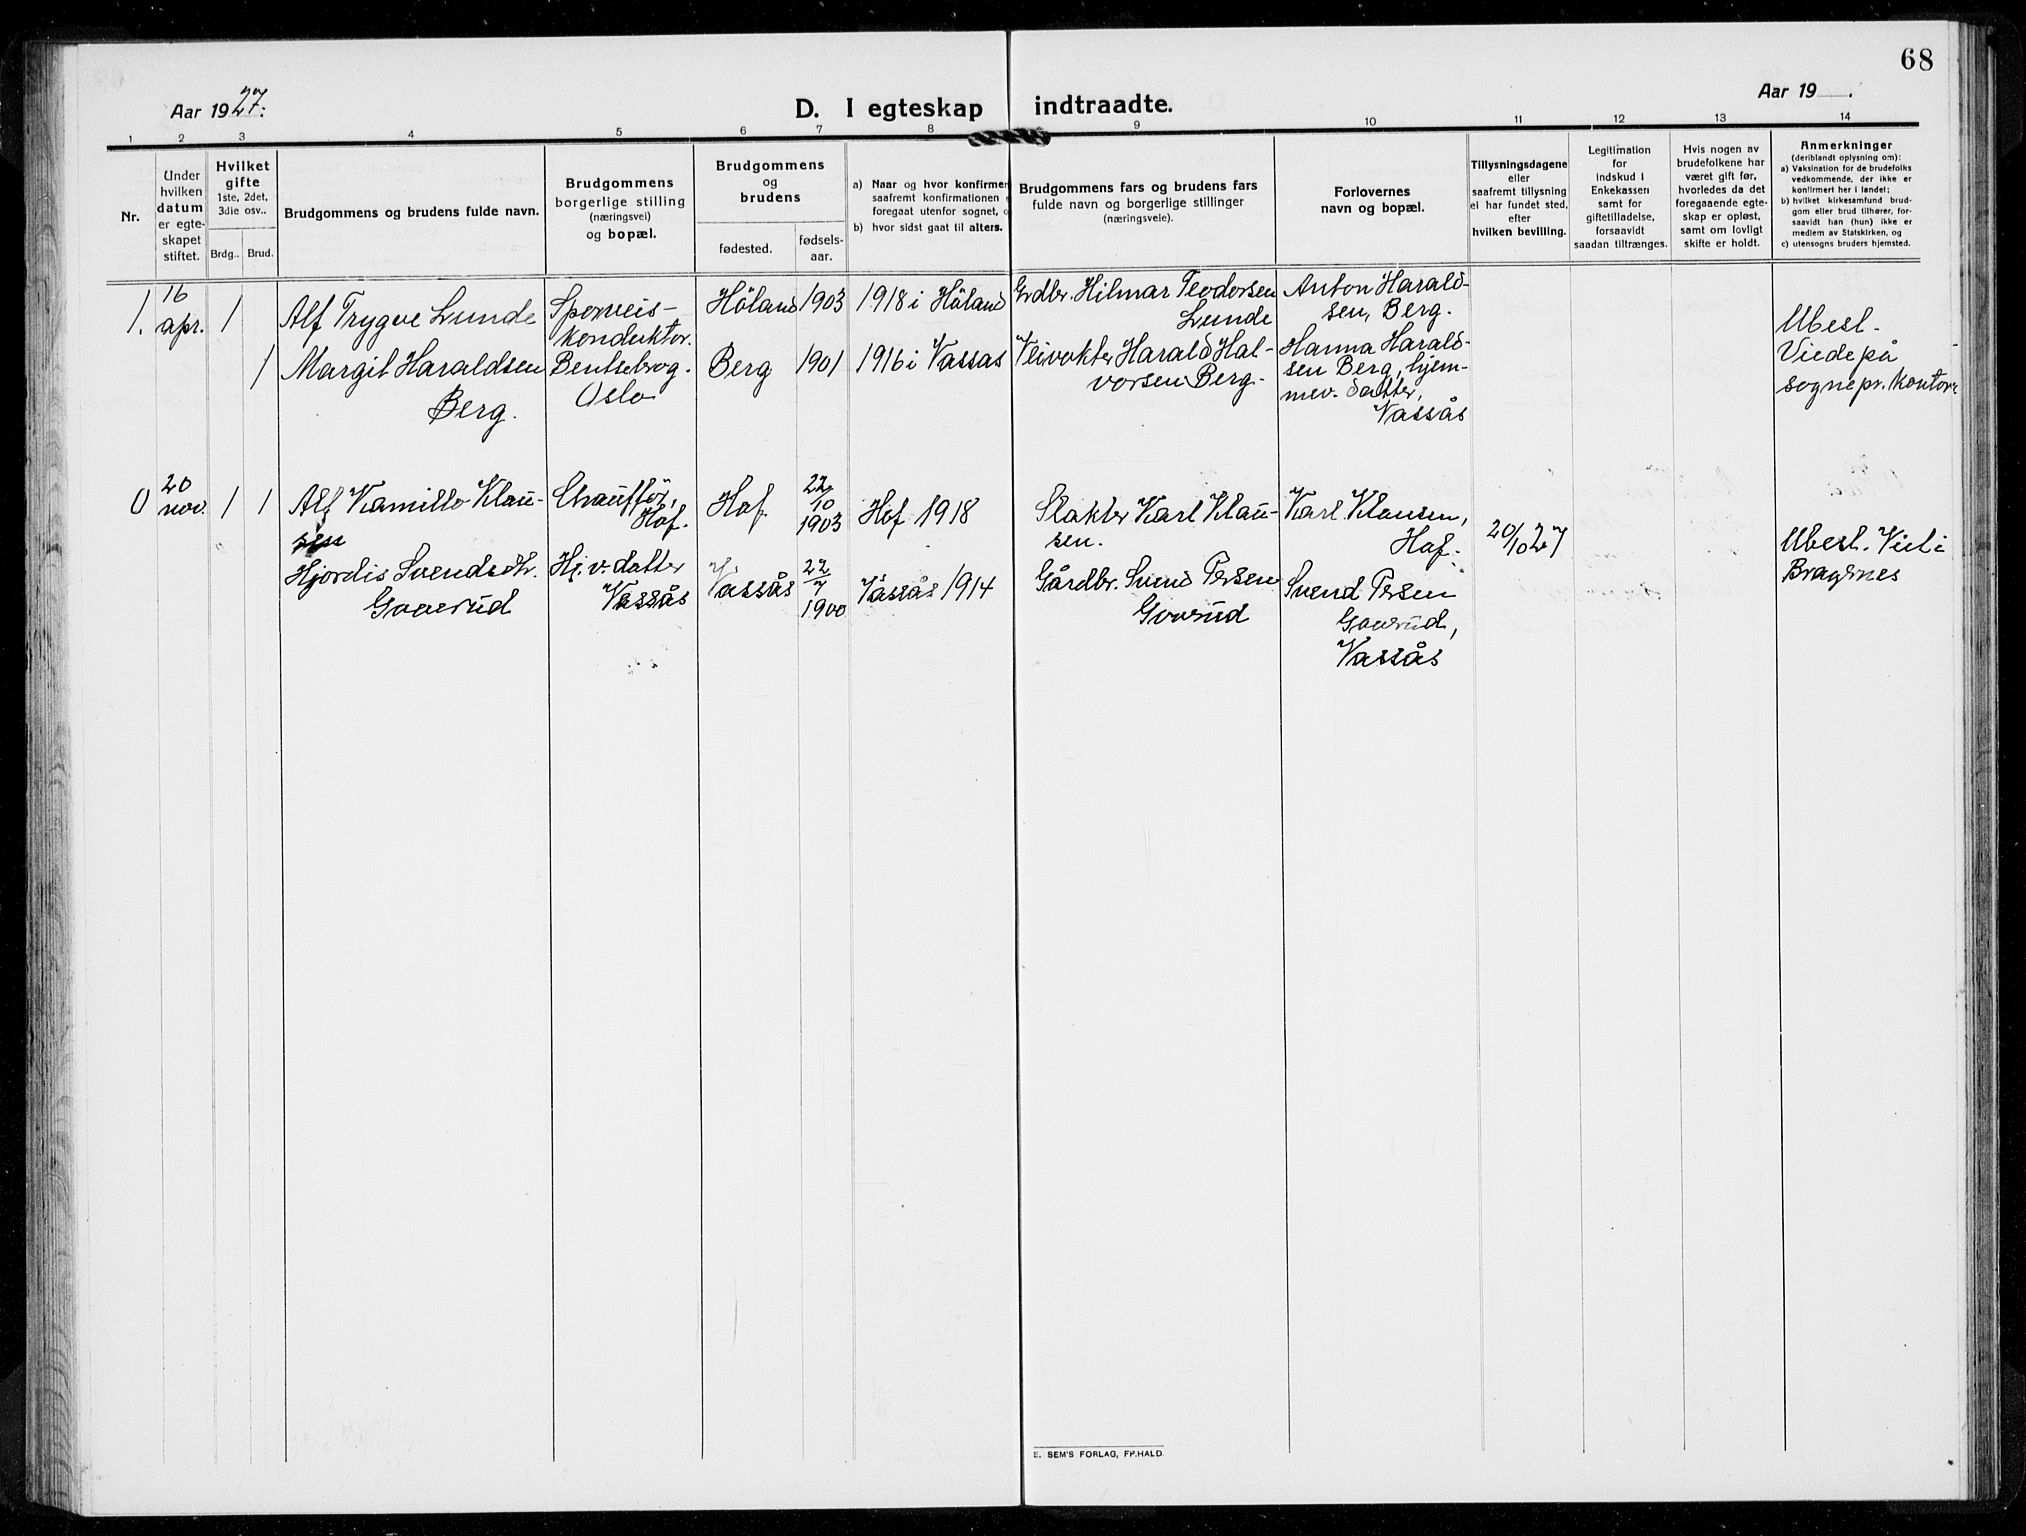 68
Aar 1927.
D. I egteskap indtraadte.
Aar 19 .
1 2 3 4 5 6 7 8 9 10 11 12 13 14
Nr.
Under
hvilken
datum
er egte-
skapet
stiftet.
Hvilket
gifte
1ste, 2det,
3die osv..
Brdg.. Brud.
Brudgommens og brudens fulde navn.
Brudgommens
borgerlige stilling
(næringsvei)
og bopæl.
Brudgommens
og
brudens
fødested.
fødsels-
aar.
a) Naar og hvor konfirmer
saafremt konfirmationen
foregaat utenfor sognet, o
b) hvor sidst gaat til alters.
Brudgommens fars og brudens fars
fulde navn og borgerlige stillinger
(næringsveie).
Forlovernes
navn og bopæl.
Tillysningsdagene
eller
saafremt tillysning
ei har fundet sted,
efter
hvilken bevilling.
Legitimation
for
indskud i
Enkekassen
samt for
giftetilladelse,
forsaavidt
saadan tiltrænges.
Hvis nogen av
brudefolkene har
været gift før,
hvorledes da det
foregaaende egte-
skap er opløst,
samt om lovligt
skifte er holdt.
Anmerkninger
(deriblandt oplysning om):
a) Vaksination for de brudefolks
vedkommende, der ikke er
konfirmert her i landet;
b) hvilket kirkesamfund brud-
gom eller brud tilhører, for-
saavidt han (hun) ikke er
medlem av Statskirken, og
c) utensogns bruders hjemsted.
1.
16
apr.
1
Alf Trygve Lunde
Sporveis-
konduktør.
Höland
1903
1918 i Höland
Grdbr. Hilmar Teodorsen
Lunde
Anton Harald-
sen, Berg.
Ubesl.
Viede på
sognepr. kontor
1
Margit Haraldsen
Berg.
Bentsebrog.
Oslo
Berg
1901
1916 i Vassas
Veivokter Harald Hal-
vorsen Berg.
Hanna Harald-
sen Berg, hjem-
mev. datter,
Vassås
0
20
nov.
1 1
Alf Kamillo Klau-
sen
Chaufför,
Hof.
Hof
22/10
1903
Hof 1918
Slakter Karl Klau-
sen.
Karl Klausen,
Hof.
20/10 27
Ubesl. Viel i
Bragernes
Hjordis Svendsdtr.
Goverud
Hj. v. datter
Vassås
Vassås
22/7
1900
Vassås 1914
Gårdbr. Svend Persen
Goverud
Svend Persen
Goverud,
Vassås
E. SEM'S FORLAG, FR.HALD